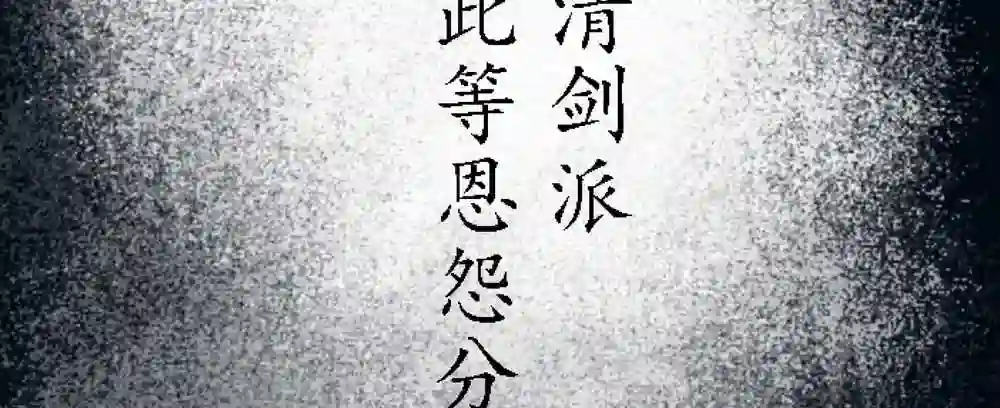 清剑派
此等恩怨分